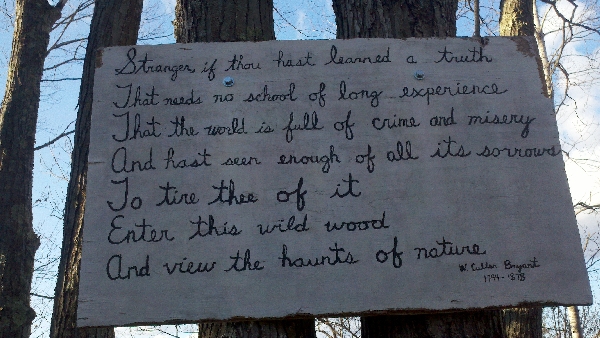 Stranger if thou hast learned a truth
That needs no school of long experience
That the world is full of crime and misery
And hast seen enough of all its sorrows
To tire thee of it
Enter this wild wood
And view the haunts of nature
W. Cullen Bryant
1794-1878